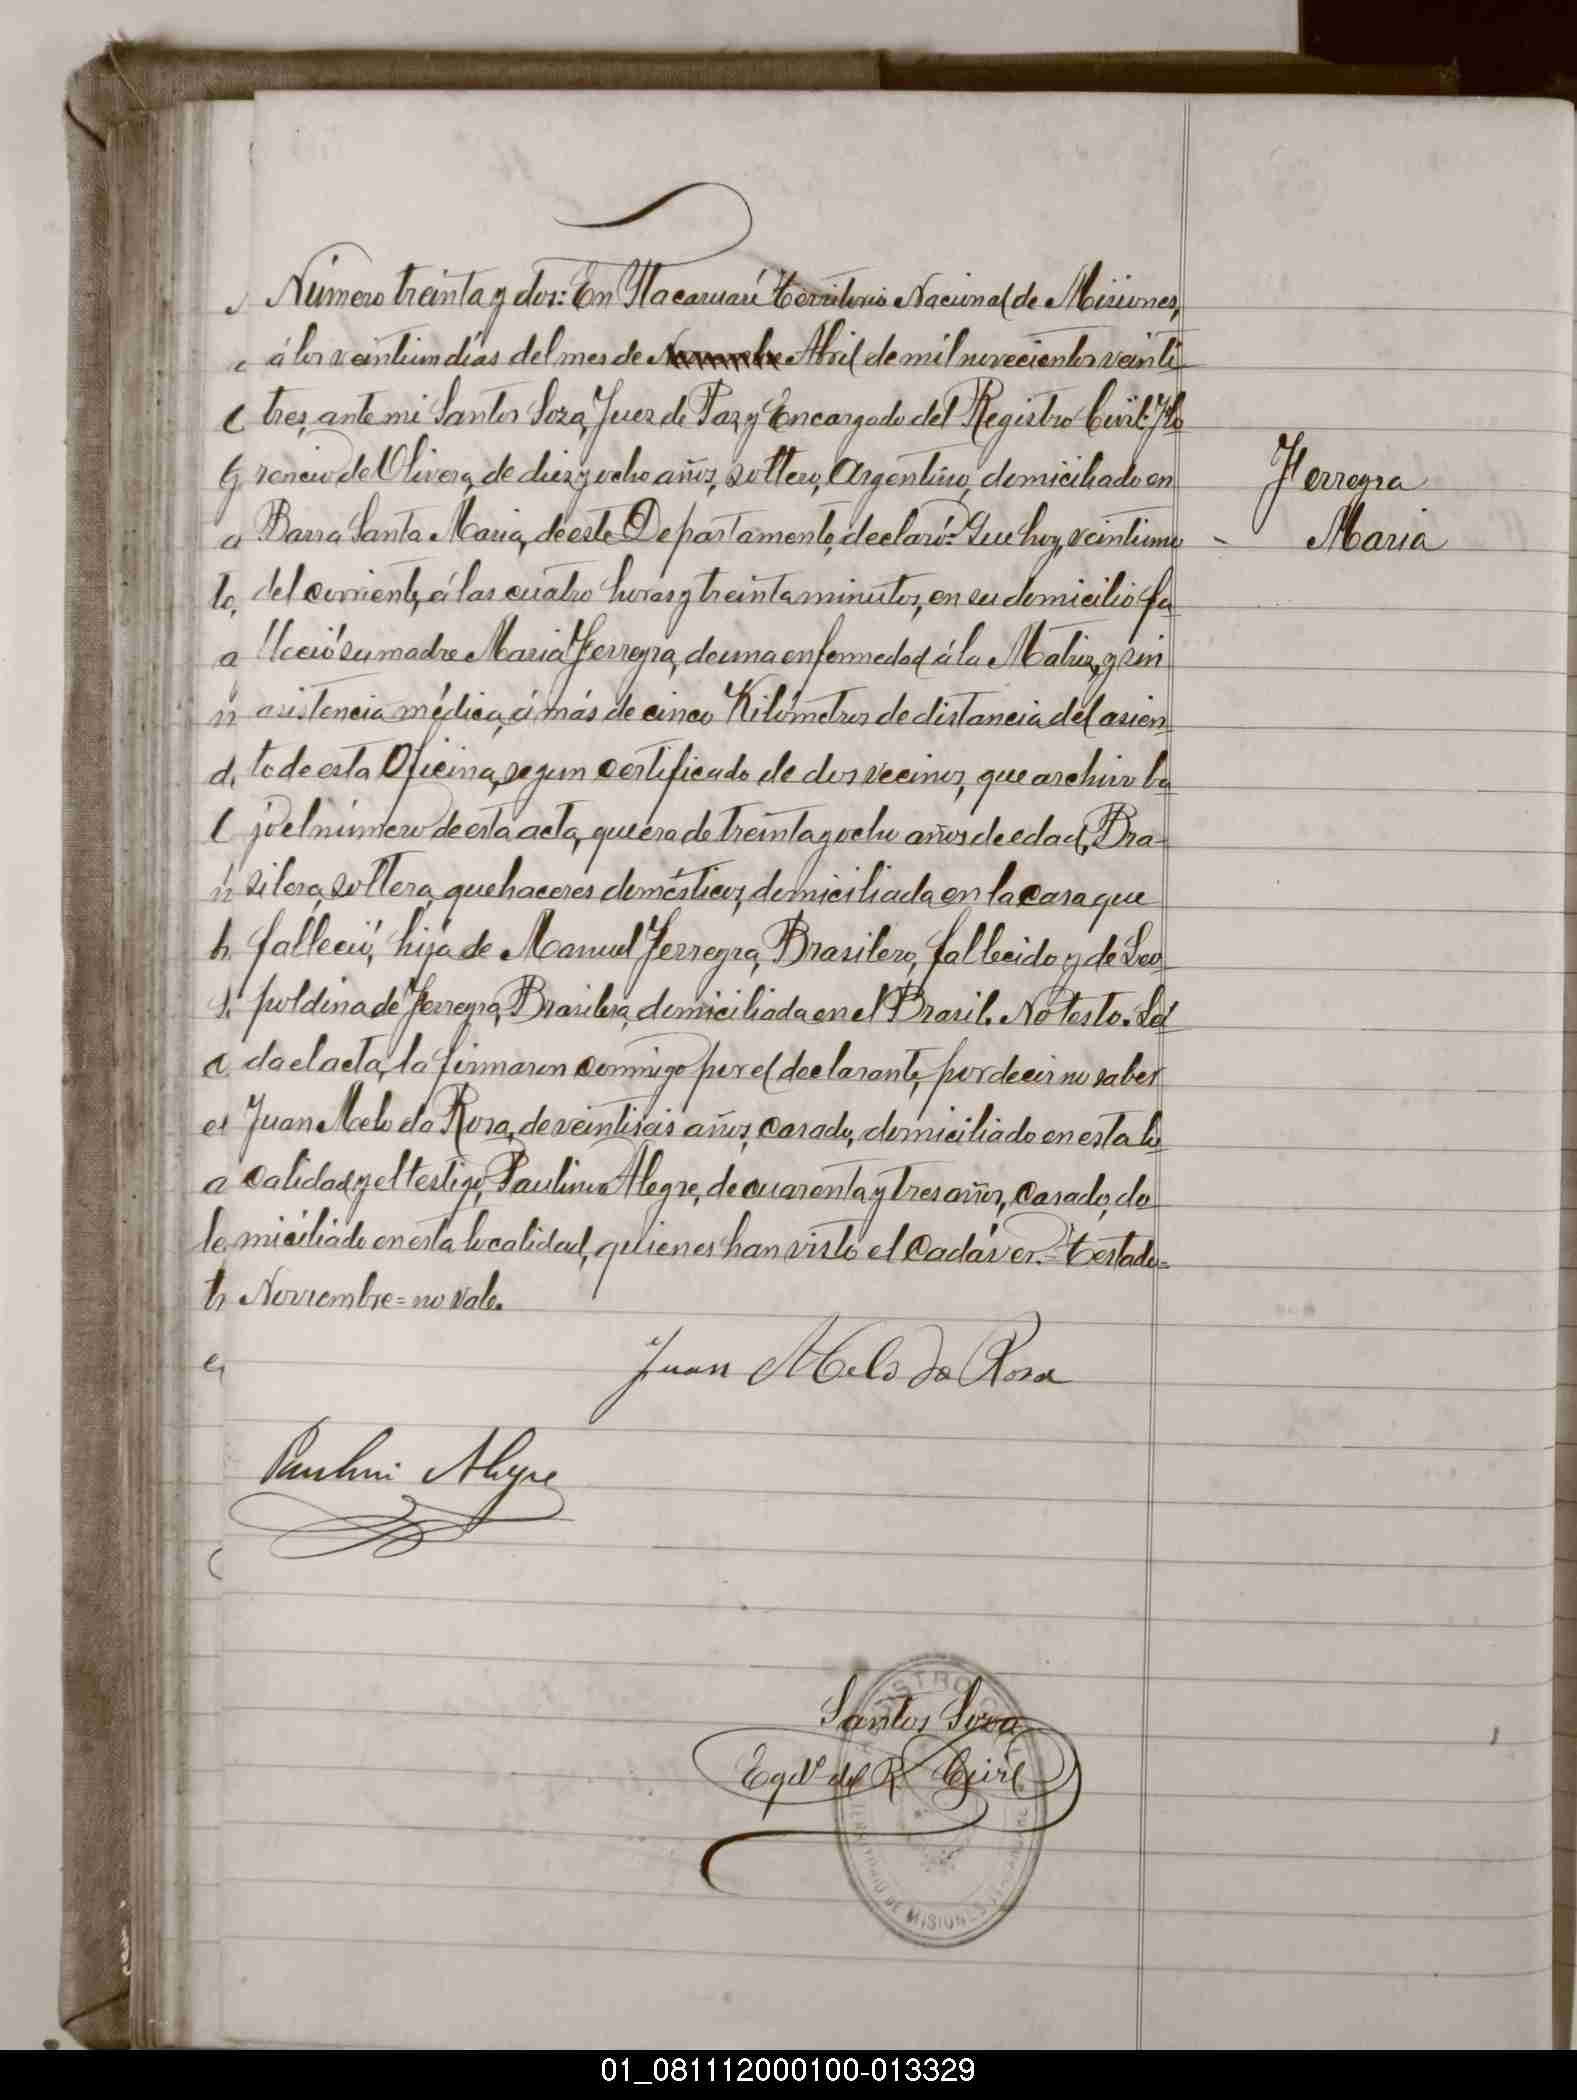 Número treinta y dos: En Itacaruaré territorio Nacional de Misiones,
á los veintiun días del mes de Abril de mil novecientos veinti
tres, ante mi Santos Soza, Juez de Paz y Encargado del Registro Civil: Flo
rencio de Olivera, de diez y ocho años, soltero, Argentino, domiciliado en
Barra Santa Maria, de este Departamento, declaró: Que hoy, veintiuno
del corriente, á las cuatro horas y treinta minutos, en su domicilio fa
lleció su madre Maria Ferreyra, de una enfermedad á la Matriz, y sin
asistencia médica, á más de cinco Kilómetros de distancia del asien
to de esta Oficina, segun certificado de dos vecinos, que archivo ba
jo el número de esta acta, que era de treinta y ocho años de edad, Bra-
silera, soltera, quehaceres domésticos, domiciliada en la casa que
falleció, hija de Manuel Ferreyra, Brasilero, fallecido y de Leo
poldina de Ferreyra, Brasilera, domiciliada en el Brasil. No testo. Leí
da el acta, la firmaron conmigo por el declarante, por decir no saber
Juan Melo da Rosa, de veintiseis años, casado, domiciliado en esta lo
calidad y el testigo, Paulino Alegre, de cuarenta y tres años, casado, do
miciliado en esta localidad, quienes han visto el cadáver. Testado=
Noviembre = no vale.
Ferreyra
Maria
Juan Melo da Rosa
Paulino Alegre
Santos Soza
Egdo. del R. Civil
REGISTRO CIVIL
TERRITORIO DE MISIONES
01_081112000100-013329